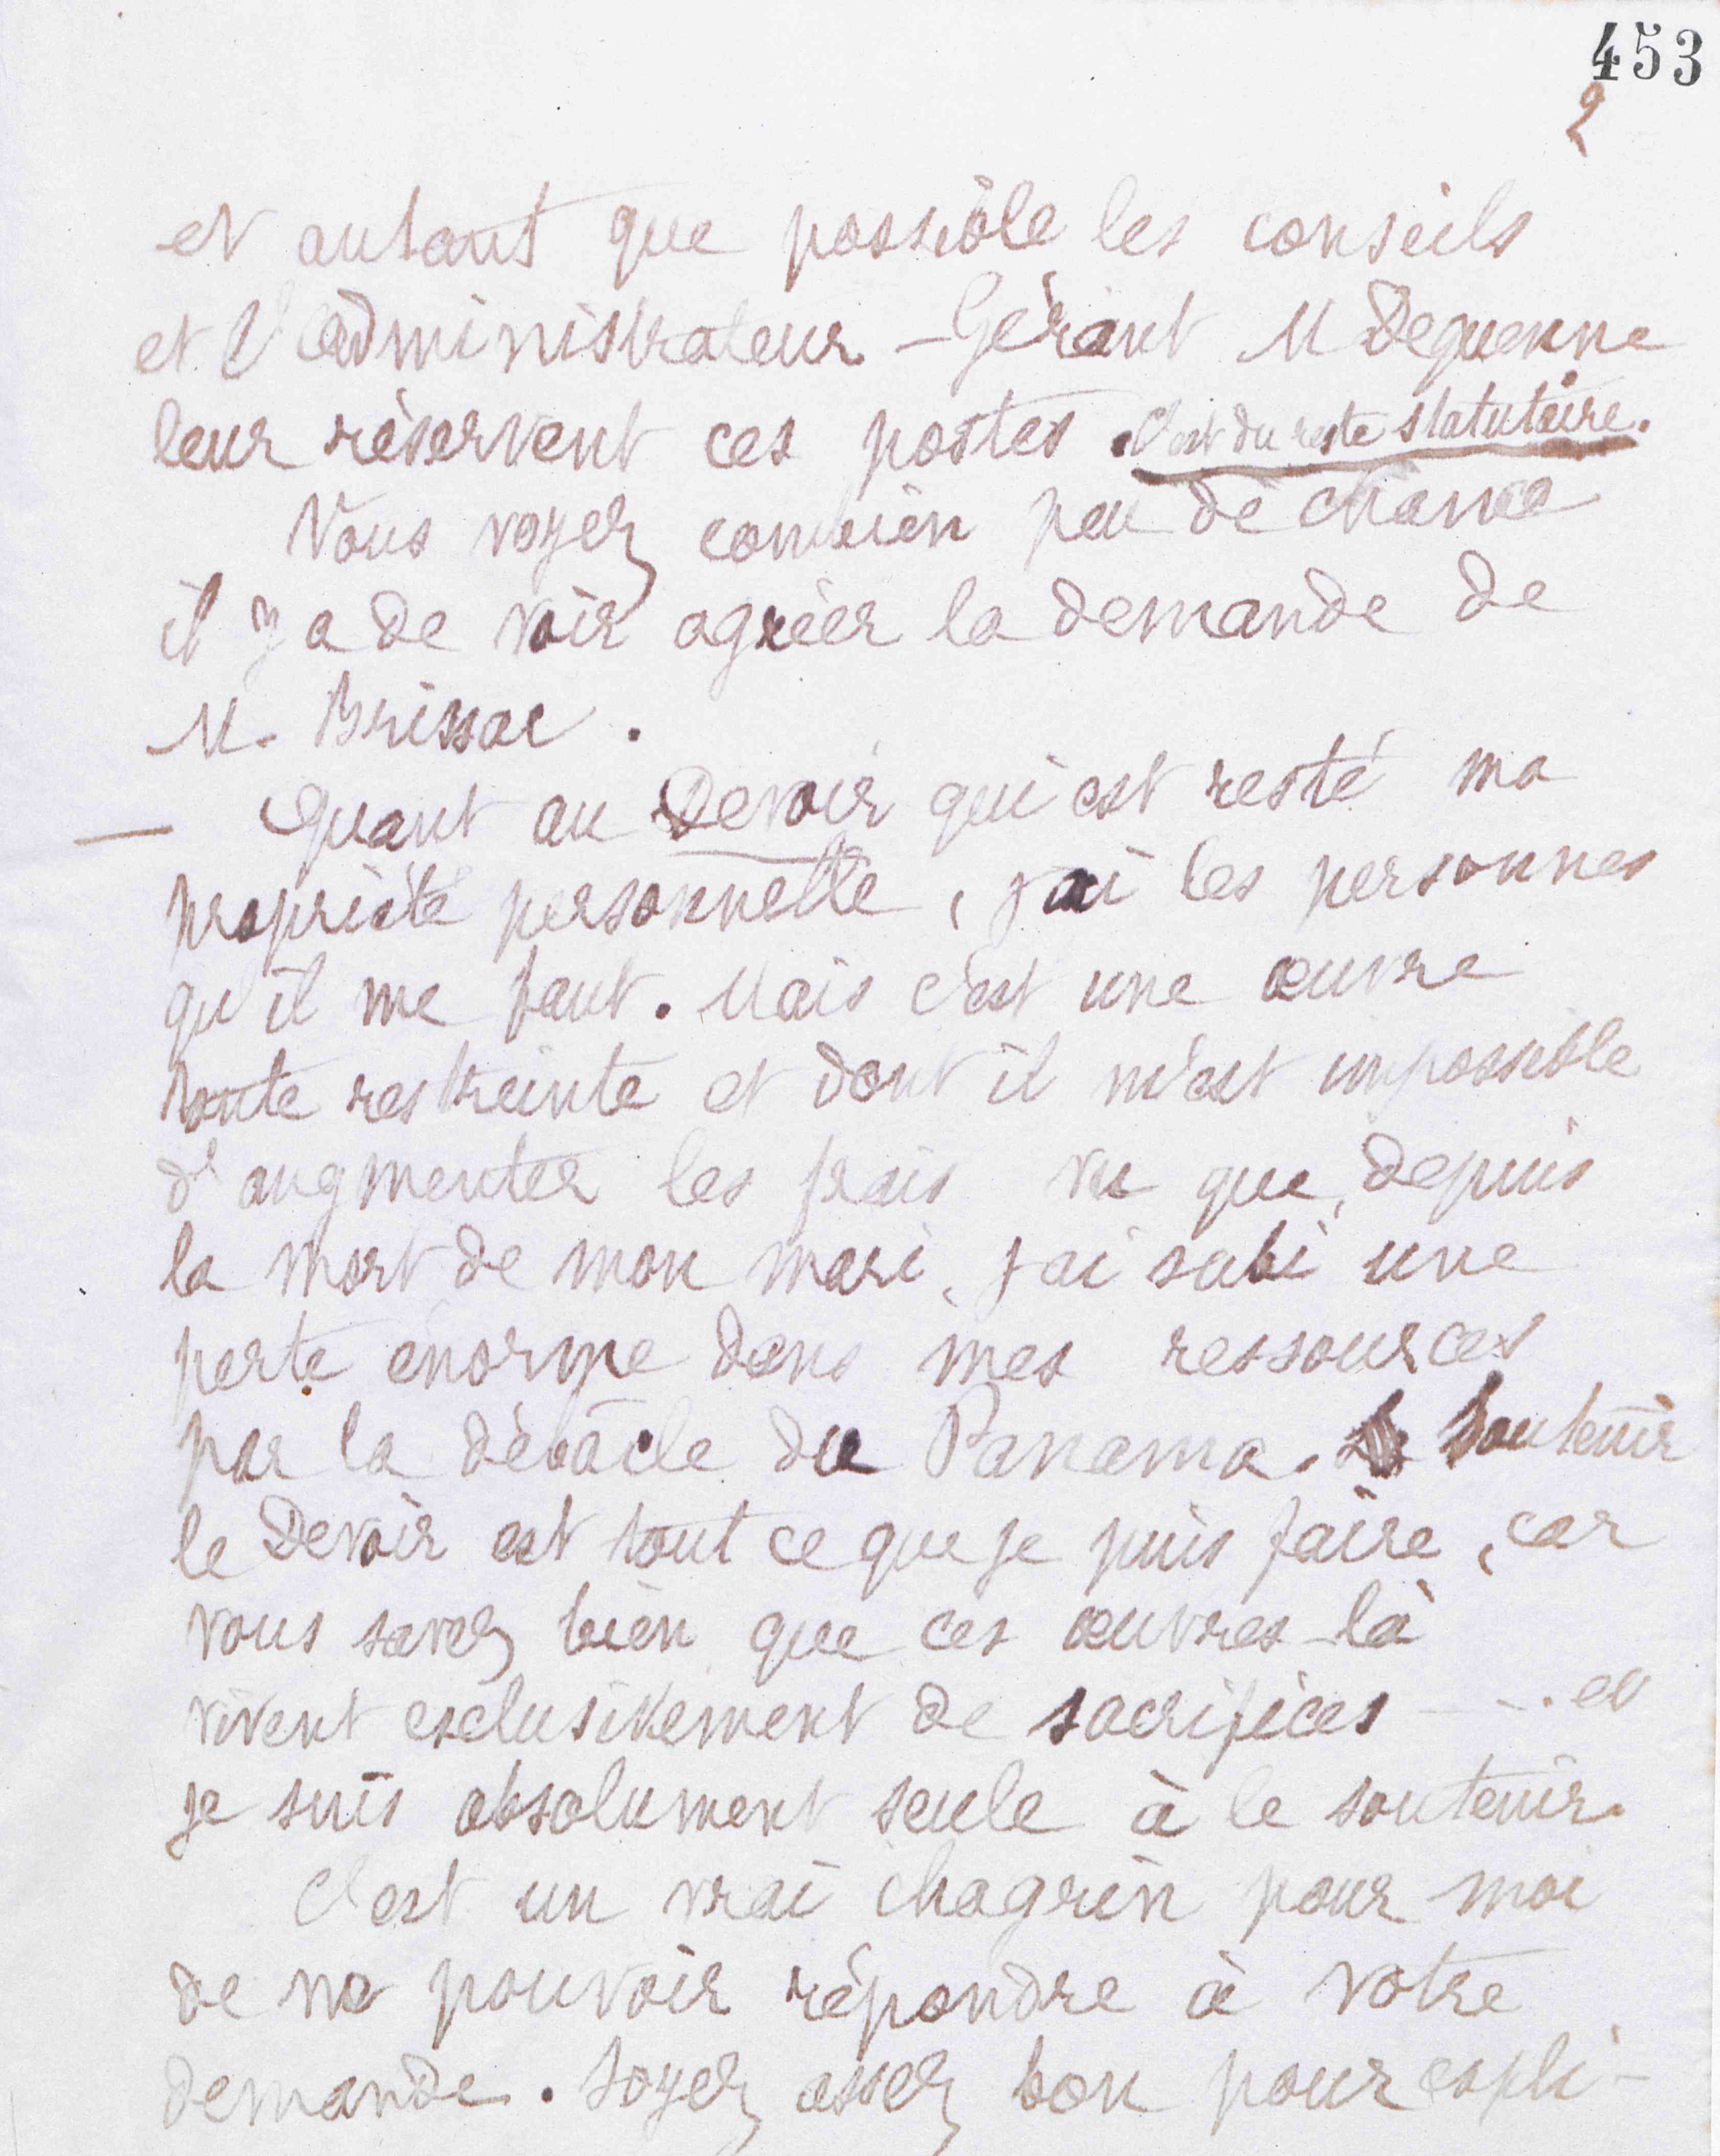 453
2
et autant que possible les conseils
et l'administrateur-Gérant M Dequenne
leur réservent ces postes. C'est du reste statutaire.
Vous voyez combien peu de chance
il y a de voir agréer la demande de
M. Brissac.
— Quant au Devoir qui est resté ma
propriété personnelle, j'ai les personnes
qu'il me faut. Mais c'est une œuvre
toute restreinte et dont il m'est impossible
d'augmenter les frais vu que, depuis
la mort de mon mari, j'ai subi une
perte énorme dans mes ressources
par la débâcle du Panama. Soutenir
le Devoir est tout ce que je puis faire, car
vous savez bien que ces œuvres-là
vivent exclusivement de sacrifices - - . et
je suis absolument seule à le soutenir.
C'est un vrai chagrin pour moi
de ne pouvoir répondre à votre
demande. Soyez assez bon pour expli-